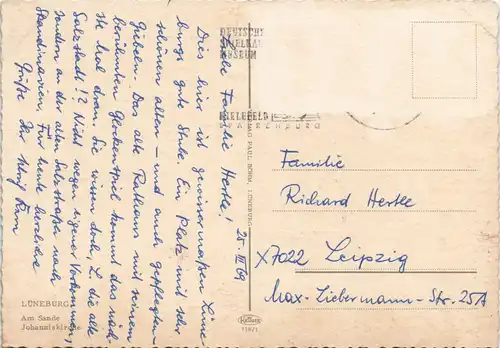 25. III 69
Liebe Familie Hertle!
Dies hier ist gewissermaßen Lüne-
burgs gute Stube. Ein Platz mit sehr
schönen alten – und auch gepflegten
Giebeln. Das alte Rathaus mit seinem
berühmten Glockenspiel kommt das näch-
ste Mal dran. Sie wissen doch, L. die alte
Salzstadt!? Nicht wegen eigener Vorkommen,
sondern an der alten Salzstraße nach
Skandinavien. Für heute herzliche
Grüße Ihr
LÜNEBURG
Am Sande
Johanniskirche
DEUTSCHES
MUSEUM
BIELEFELD
VERLAG PAUL LÜNEBURG
Familie
Richard Hertle
X7022 Leipzig
Max-Liebermann-Str. 25A